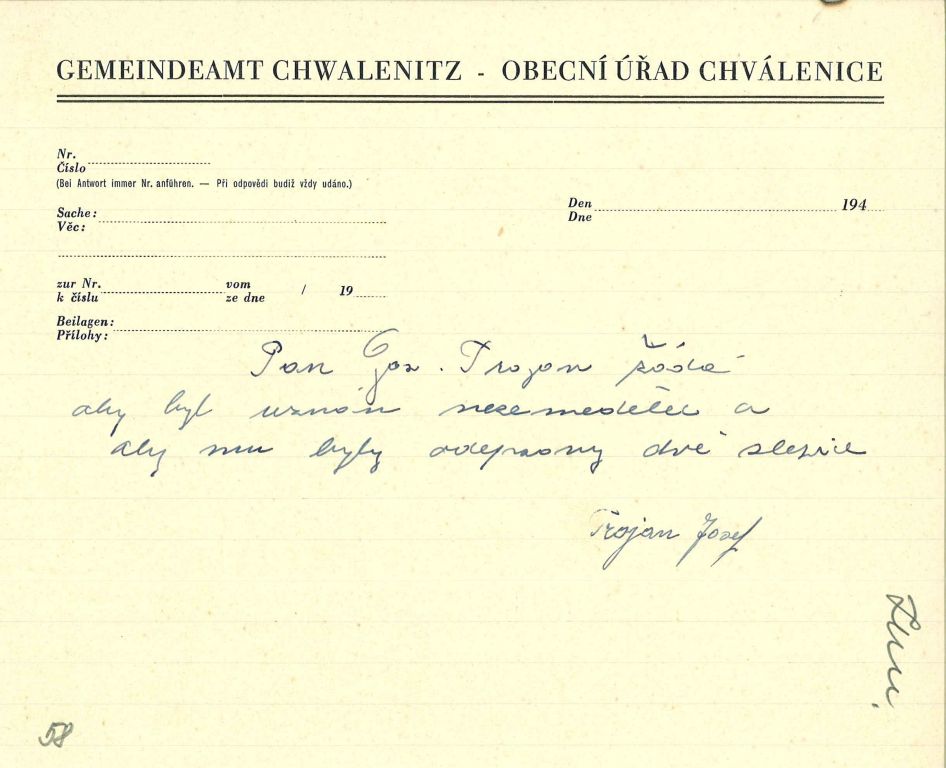 GEMEINDEAMT CHWALENITZ - OBECNÍ ÚŘAD CHVÁLENICE
Nr.
Číslo
(Bei Antwort immer Nr. anführen. — Při odpovědi budiž vždy udáno.)
Sache:
Věc:
Den
Dne 194
zur Nr. vom
k číslu ze dne / 19
Beilagen:
Přílohy:
Pan Jos. Trojan žádá
aby byl uznán nezemědělec a
aby mu byly odepsany dvě slepice
Trojan Josef
58